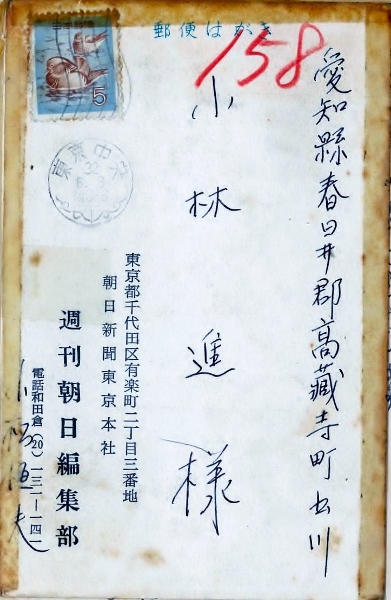 郵便はがき
158
5
愛知縣春日井郡高藏寺町出川
小林進様
東京中央
32
東京都千代田区有楽町二丁目三番地
朝日新聞東京本社
週刊朝日編集部
電話和田倉(20)一三一―一四一
小松恒夫